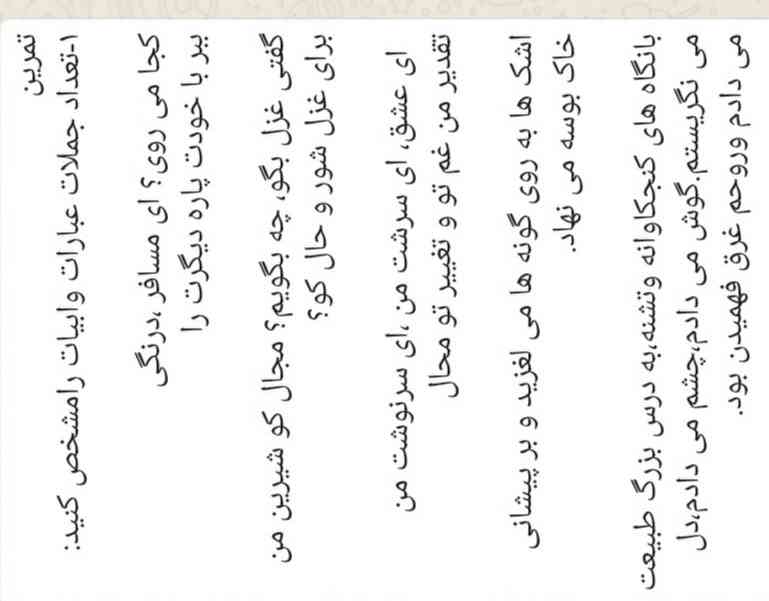 تمرین
۱-تعداد جملات عبارات وابیات رامشخص کنید:
کجا می روی؟ ای مسافر ،درنگی
ببر با خودت پاره دیگرت را
گفتی غزل بگو، چه بگویم؟ مجال کو شیرین من
برای غزل شور و حال کو؟
ای عشق، ای سرشت من ،ای سرنوشت من
تقدیر من غم تو و تغییر تو محال
اشک ها به روی گونه ها می لغزید و بر پیشانی
خاک بوسه می نهاد.
بانگاه های کنجکاوانه وتشنه،به درس بزرگ طبیعت
می نگریستم.گوش می دادم،چشم می دادم،دل
می دادم وروحم غرق فهمیدن بود.